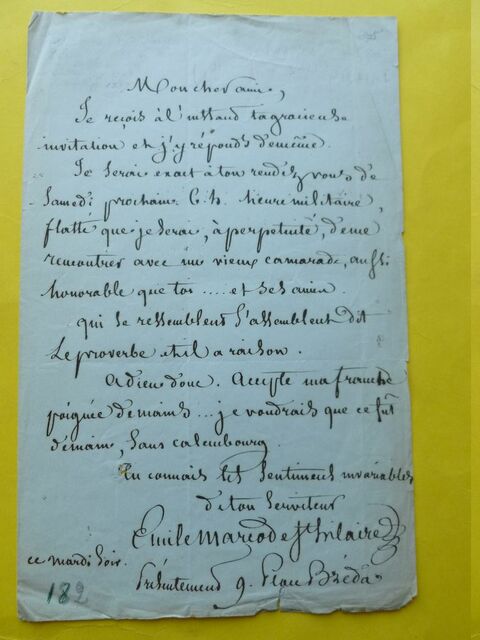 Mon cher ami,
Je reçois à l'instant ta gracieuse
invitation et j'y réponds de même.
Je serai exact à ton rendez vous de
Samedi prochain 6. h. heure militaire,
flatté que je serai, à perpétuité, de me
rencontrer avec un vieux camarade, aussi
honorable que toi .... et ses amis.
qui se ressemblent s'assemblent dit
Le proverbe et il a raison.
Adieu donc. Accepte ma franche
poignée de mains ... je voudrais que ce fût
demain, sans calembourg.
Tu connais les sentimens invariables
de ton Serviteur
Emile Marco de St hilaire
ce mardi soir.
Présentement 9. Place Bréda.
182